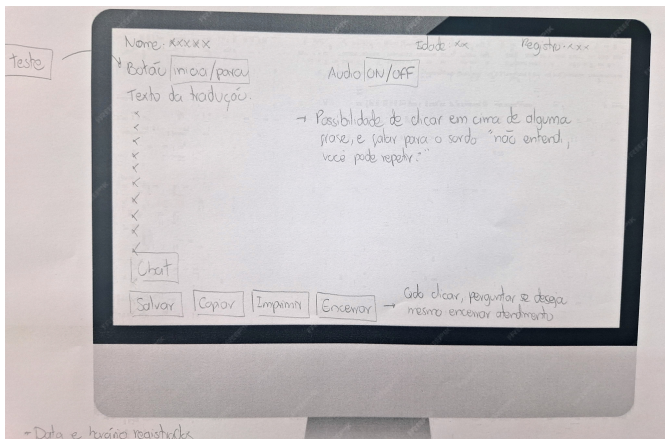 Nome: xxxxx
Idade xx
Registro: xxx
teste
Botão inicia/parar
Audio ON/OFF
Texto da tradução:
x
x
x
x
x
x
x
x
x
x
x
→ Possibilidade de clicar em cima de alguma
frase, e falar para o surdo "não entendi,
você pode repetir?"
Chat
Salvar
Copiar
Imprimir
Encerrar
→ Qdo clicar, perguntar se deseja
mesmo encerrar atendimento
- Data e horário registrados